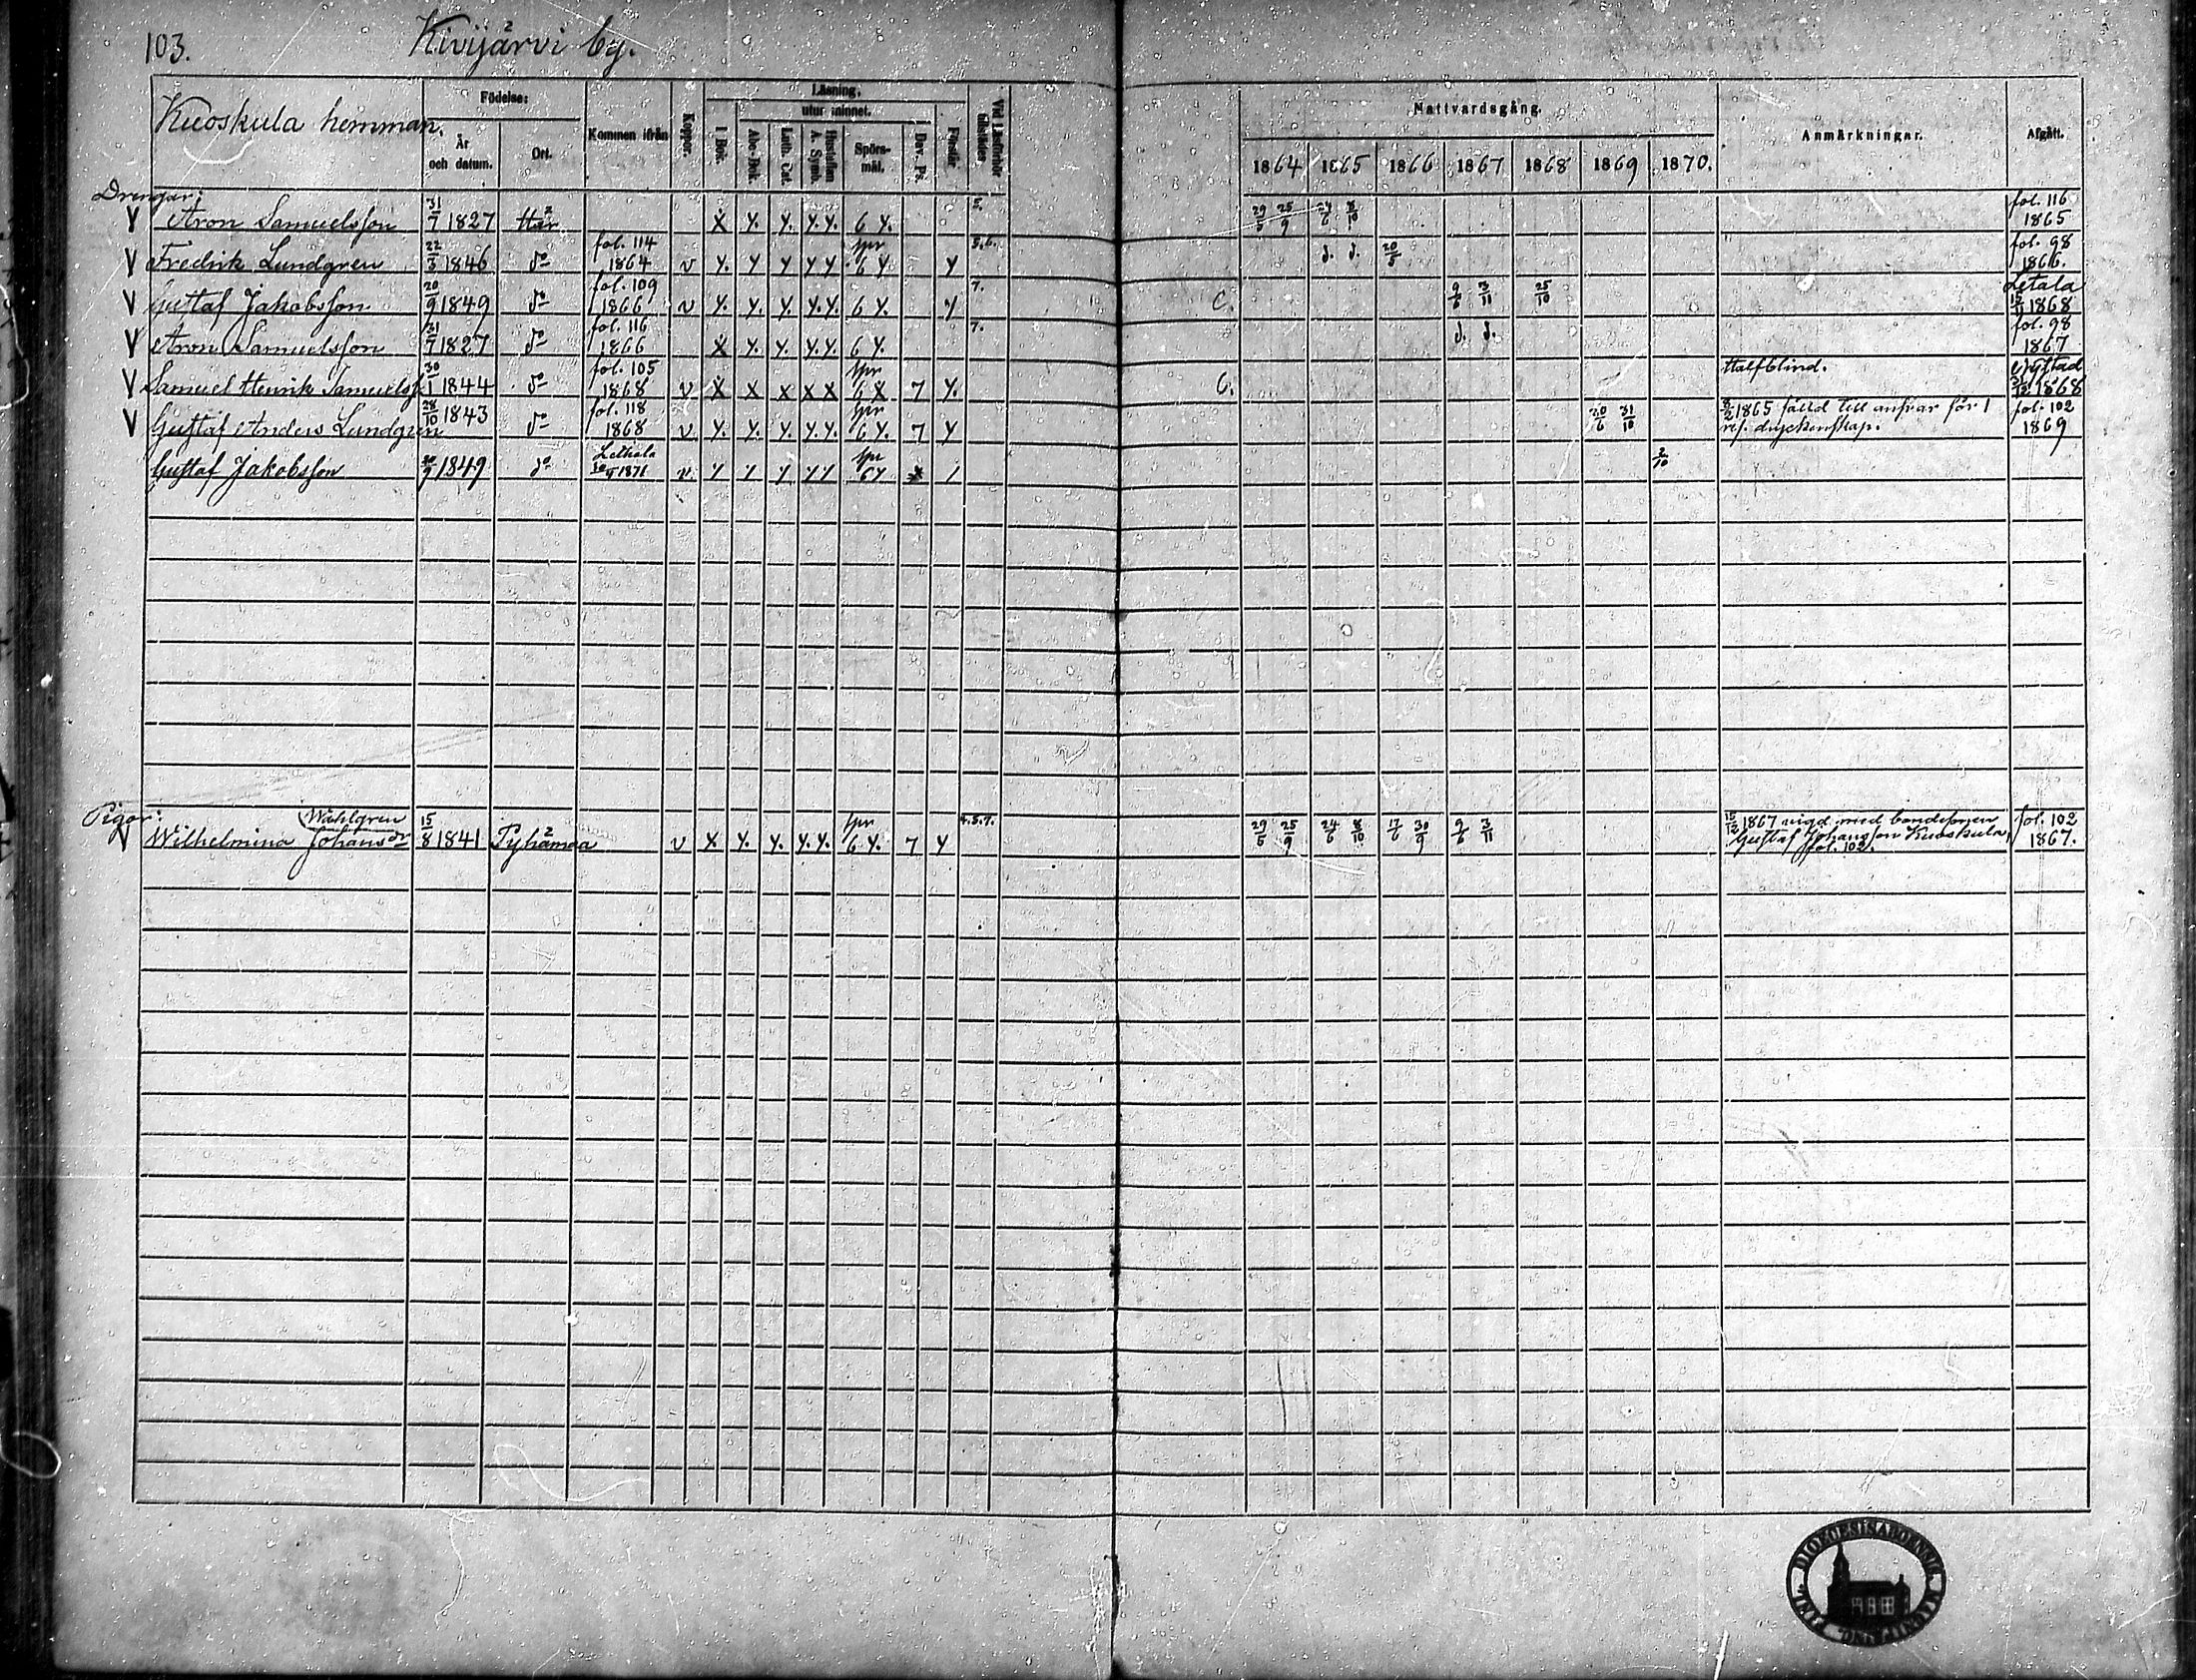 103. Kivijärvi by.
Kuoskula hemman. Födelse: År och datum. Ort. Kommen ifrån Koppor. Läsning, I Bok. utur minnet. Abc-Bok. Luth. Cat. Hustaflan A. Symb. Spörs-mål. Dav. Ps. Förstår. Vid Läsförhör tillstädes Nattvardsgång. 1864 1865 1866 1867 1868 1869 1870. Anmärkningar. Afgått.
Drengar:
V Aron Samuelsson 31/7 1827 Här X Y. Y. Y. Y. 6 Y. 5. 29/5 25/9 24/6 8/10 fol. 116 1865
V Fredrik Lundgren 22/3 1846 do fol. 114 1864 v Y. Y Y Y Y spr 6 Y Y 5.6. d. d. 20/5 fol. 98 1866.
V Gustaf Jakobsson 20/9 1849 do fol. 109 1866 v Y. Y. Y. Y. Y. 6 Y. Y 7. C. 9/6 3/11 25/10 Letala 15/11 1868
V Aron Samuelsson 31/7 1827 do fol. 116 1866 X Y. Y. Y. Y. 6 Y. 7. d. d. fol. 98 1867
V Samuel Henrik Samuelss. 30/1 1844 do fol. 105 1868 v X X X X X spr 6 X 7 Y. C. Halfblind. Nystad 1868
V Gustaf Anders Lundgren 28/10 1843 do fol. 118 1868 v Y. Y. Y. Y. Y. spr 6 Y. 7 Y 20/6 31/10 1865 fälld till ansvar för 1 res. dryckenskap. fol. 102 1869
Gustaf Jakobsson 20/9 1849 do 1871 v Y Y Y Y Y spr 6 Y 2/10
Pigor: Wahlgren
V Wilhelmina Johansdr 15/8 1841 Pyhämaa v X Y. Y. Y. Y. spr 6 Y. 7 Y 4.5.7. 29/5 25/9 24/6 8/10 17/6 30/9 9/6 3/11 15/12 1867 vigd med bondesonen Gustaf Johansson Kuoskula, fol. 102. fol. 102 1867.